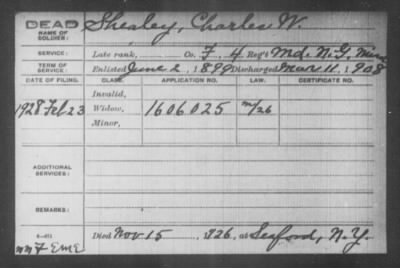 DEAD
NAME OF SOLDIER: Shealey, Charles W.
SERVICE: Late rank, Co. F, 4 Reg't Md. N.G.
TERM OF SERVICE: Enlisted June 2, 1899 Discharged Mar. 11, 1908
DATE OF FILING. CLASS. APPLICATION NO. LAW. CERTIFICATE NO.
Invalid,
1928 Feb 23 Widow, 1606025 m/26
Minor,
ADDITIONAL SERVICES:
REMARKS:
Died Nov 15, 1926, at Seaford, N.Y.